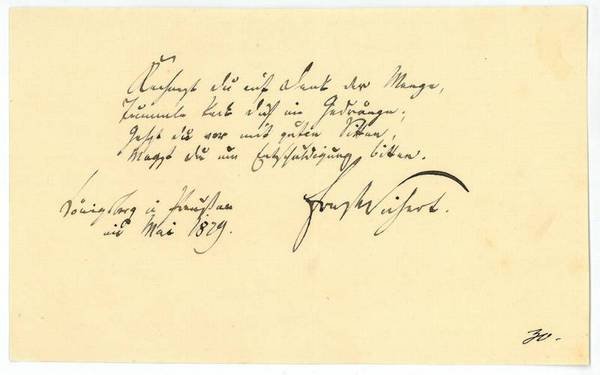 Verzagt du auf Dank der Menge,
Tummle keck dich im Gedränge;
Gehst du vor mit guten Sitten,
Magst du um Entschuldigung bitten.
Königsberg in Preußen
im Mai 1879.
Ernst Wichert.
30.-